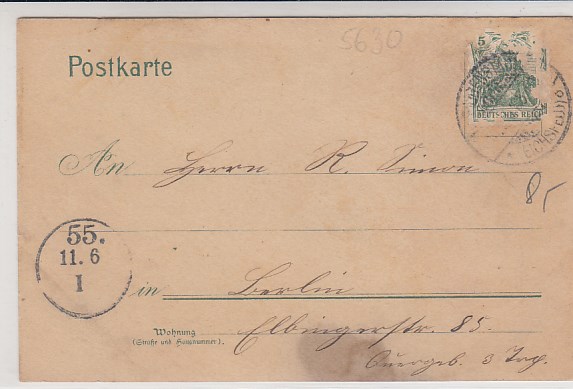 5630
Postkarte
5
DEUTSCHES REICH
An Herrn R. Simon
85
55.
11. 6
I
in Berlin
Wohnung
(Straße und Hausnummer).
Elbingerstr. 85.
Quergeb. 3 Trp.